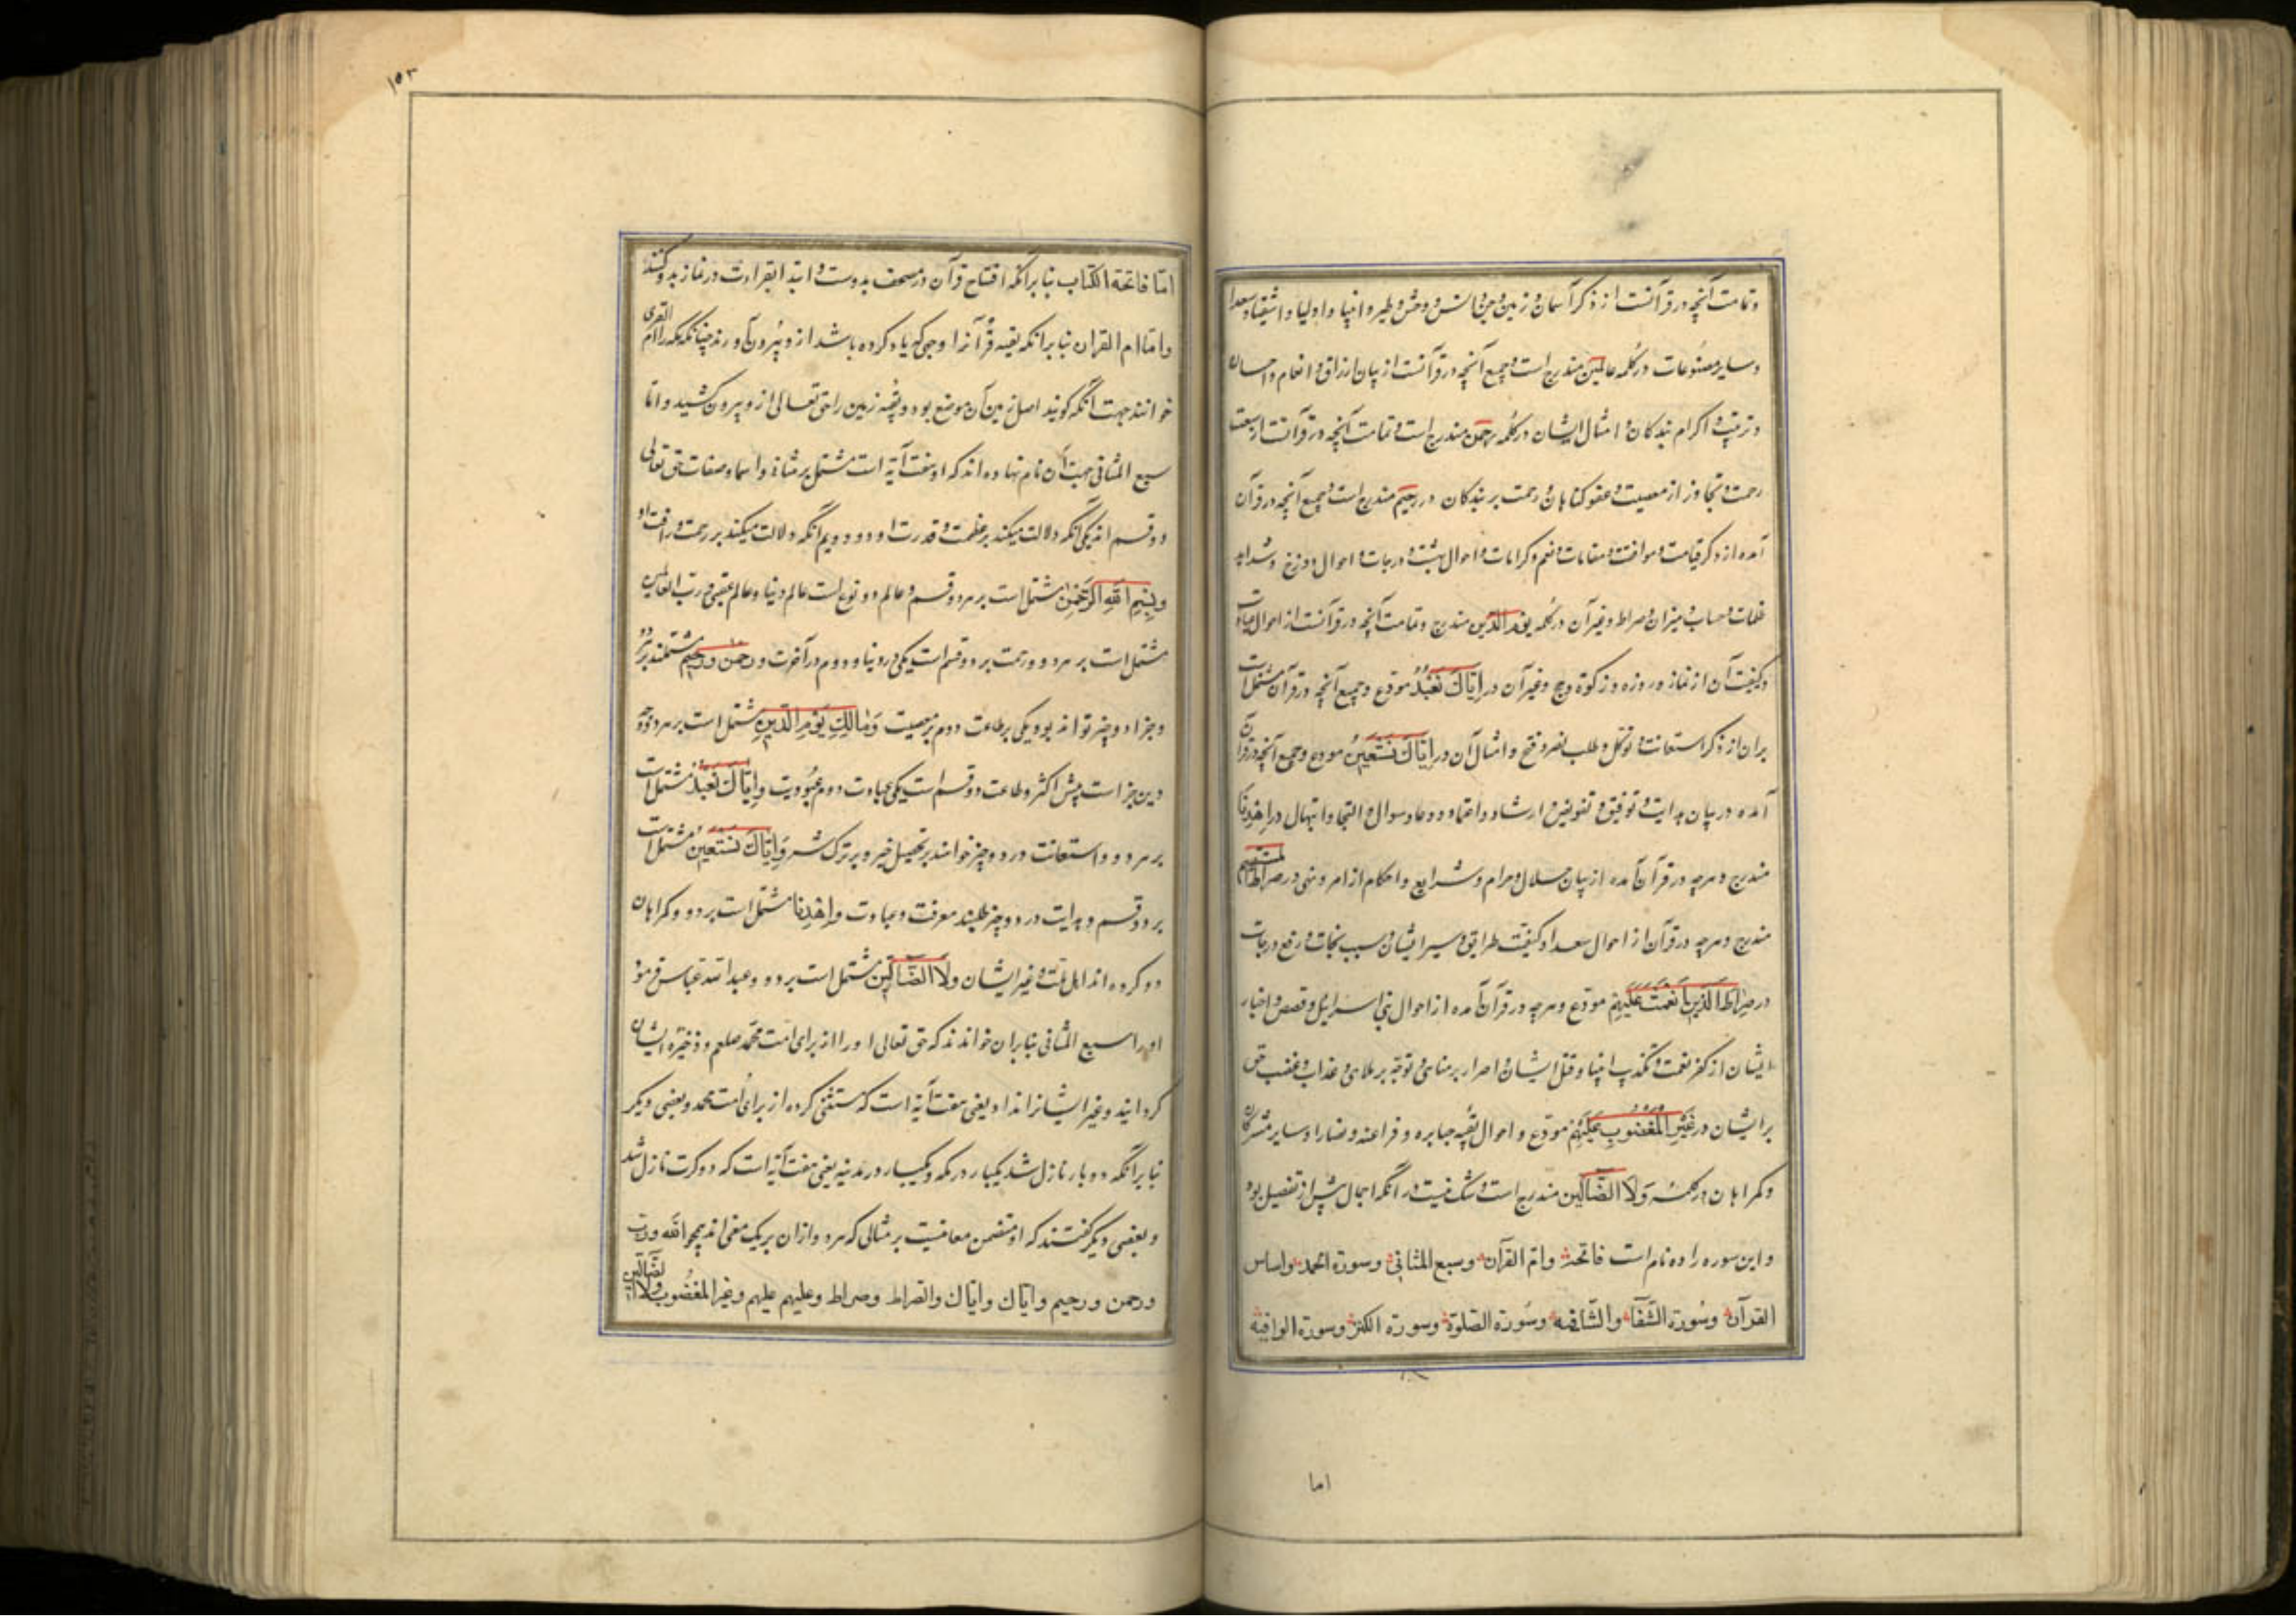 و تمامت آنچه در قرآنست از ذکر آسمان و زمین و جن و انس و وحش و طیر و انبیا و اولیا و اشقیا و سعدا
و سایر مصنوعات در کلمه عالمین مندرج است و جمیع آنچه در قرآنست از بیان ارزاق و انعام و احسان
و تربیت و اکرام بندکان و امثال ایشان در کلمه رحمن مندرج است و تمامت آنچه در قرآنست از سعت
رحمت و تجاوز از معصیت و عفو کناهان و رحمت بر بندکان در رحیم مندرج است و جمیع آنچه در قرآن
آمده از ذکر قیامت و مواقف و مقامات و نعیم و کرامات و احوال بهشت و درجات و احوال دوزخ و شداید
ظلمات و حساب و میزان و صراط و غیر آن در کلمه یوم الدین مندرج و تمامت آنچه در قرآنست از احوال عبادات
و کیفیت آن از نماز و روزه و زکوة و حج و غیر آن در ایاك نعبد مودع و جمیع آنچه در قرآن مشتمل است
بران از ذکر استعانت و توکل و طلب نصر و فتح و امثال آن در ایاك نستعین مودع و جمیع آنچه در قرآن
آمده در بیان هدایت و توفیق و تفویض و ارشاد و اعتماد و دعا و سوال و التجا و ابتهال در اهدنا
مندرج و هرچه در قرآن آمده از بیان حلال و حرام و شرایع و احکام از امر و نهی در صراط المستقیم
مندرج و هرچه در قرآن از احوال سعدا و کیفیت طرایق و سیر ایشان و سبب نجات و رفع درجات
در صراط الذین انعمت علیهم مودع و هرچه در قرآن آمده از احوال بنی اسرائیل و قصص و اخبار
ایشان از کفر نعمت و تکذیب انبیا و قتل ایشان و اصرار بر مناهی و توجه بر ملاهی و عذاب و غضب حق
بر ایشان در غیر المغضوب علیهم مودع و احوال بقیه جبابره و فراعنه و نصارا و سایر مشرکان
و کمراهان در کلمه ولا الضالین مندرج است و شک نیست در آنکه اجمال پیش از تفصیل بود
و این سوره را ده نام است فاتحه و ام القرآن و سبع المثانی و سورة الحمد و اساس
القرآن و سورة الشفا و الشافیه و سورة الصلوة و سورة الکنز و سورة الوافیه
اما
۱۵۳
اما فاتحة الکتاب بنا برانکه افتتاح قرآن در مصحف بدوست و ابتدا بقراءت در نماز بدو کنند
و اما ام القران بنا برانکه بقیه قرآنرا وجهی که یاد کرده باشد ازو بیرون آورند چنانکه مکه را ام القری
خوانند جهت آنکه کویند اصل زمین آن موضع بود و بقیه زمین را حق تعالی ازو بیرون کشید و اما
سبع المثانی جهت آن نام نهاده اند که او هفت آیه است مشتمل بر مثانی و اسما و صفات حق تعالی
دو قسم اند یکی آنکه دلالت میکند بر عظمت و قدرت او و دویم آنکه دلالت میکند بر رحمت و رافت او
و بسم الله الرحمن مشتمل است بر هر دو قسم و عالم دو نوع است عالم دنیا و عالم عقبی و رب العالمین
مشتمل است بر هر دو و رحمت بر دو قسم است یکی در دنیا و دوم در آخرت و رحمن و رحیم مشتملند بر هر دو
و جزا دو چیز تواند بود یکی بر طاعت دوم بر معصیت و مالك یوم الدین مشتمل است بر هر دو
دین جز است پیش اکثر و طاعت دو قسم است یکی عبادت دوم عبودیت و ایاك نعبد مشتمل است
بر هر دو و استعانت در دو چیز خوانند بر تحصیل خیر و بر ترک شر و ایاك نستعین مشتمل است
بر دو قسم و هدایت در دو چیز طلبند معرفت و عبادت و اهدنا مشتمل است بر دو و کمراهان
دو کروه اند اهل ملت و غیر ایشان ولا الضالین مشتمل است بر دو و عبدالله عباس فرمود
او را سبع المثانی بنابران خوانند که حق تعالی او را از برای امت محمد صلعم ذخیره ایشان
کردانید و غیر ایشانرا نداد یعنی هفت آیه است که مستثنی کرده از برای امت محمد و بعضی دیکر
بنا برانکه دو بار نازل شد یکبار در مکه و یکبار در مدینه یعنی هفت آیه است که دو کرت نازل شد
و بعضی دیکر کفتند که او متضمن معانیست بر مثالی که هر دو ازان بر یک معنی اند همچو الله و رب
و رحمن و رحیم و ایاك و ایاك و الصراط و صراط و علیهم علیهم و غیر المغضوب ولا الضالین